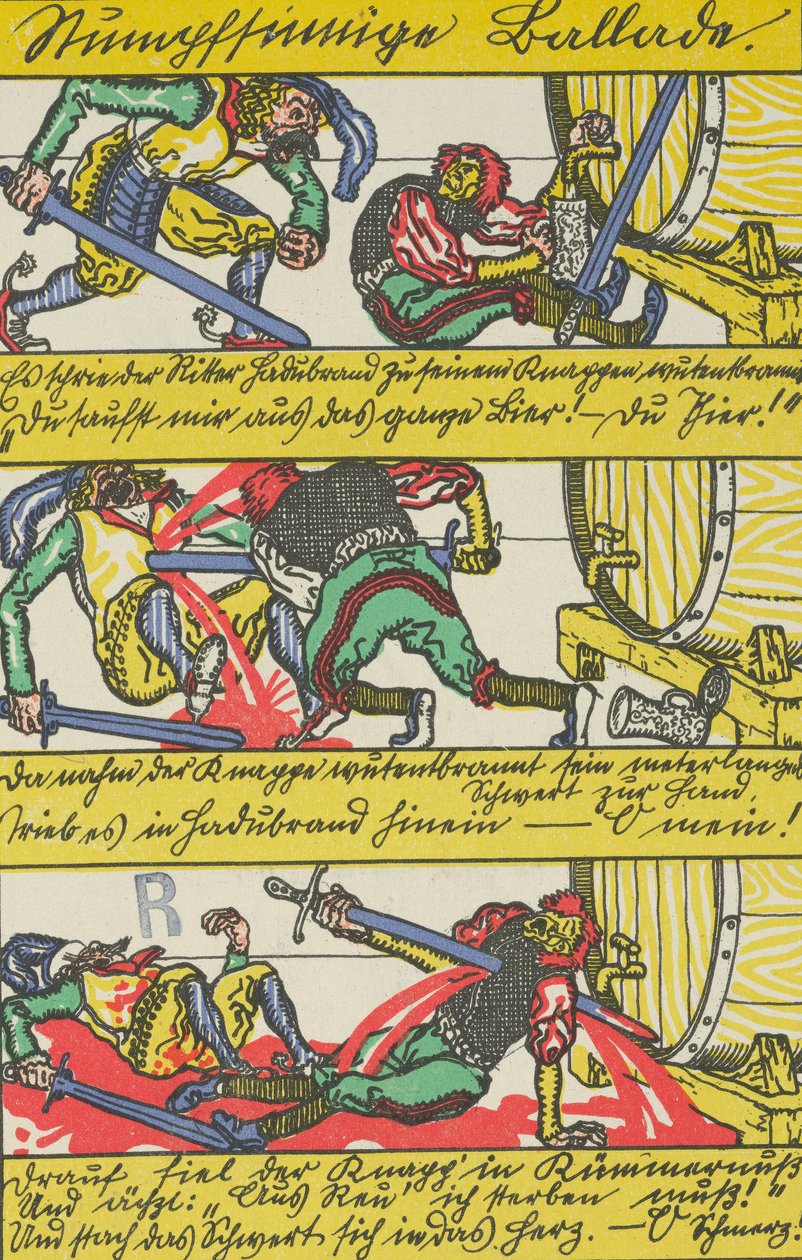 Stumpfsinnige Ballade.
Es schrie der Ritter Hadubrand zu seinem Knappen, wutentbrannt
„Du saufst mir aus das ganze Bier! – Du Thier!“
R
Da nahm der Knappe wutentbrannt sein meterlanges
Schwert zur Hand,
Trieb es in Hadubrand hinein — O mein!
Drauf fiel der Knapp' in Kümmernuß
Und ächzt: „Aus Reu' ich sterben muß!“
Und stach das Schwert sich in das Herz. – O Schmerz!